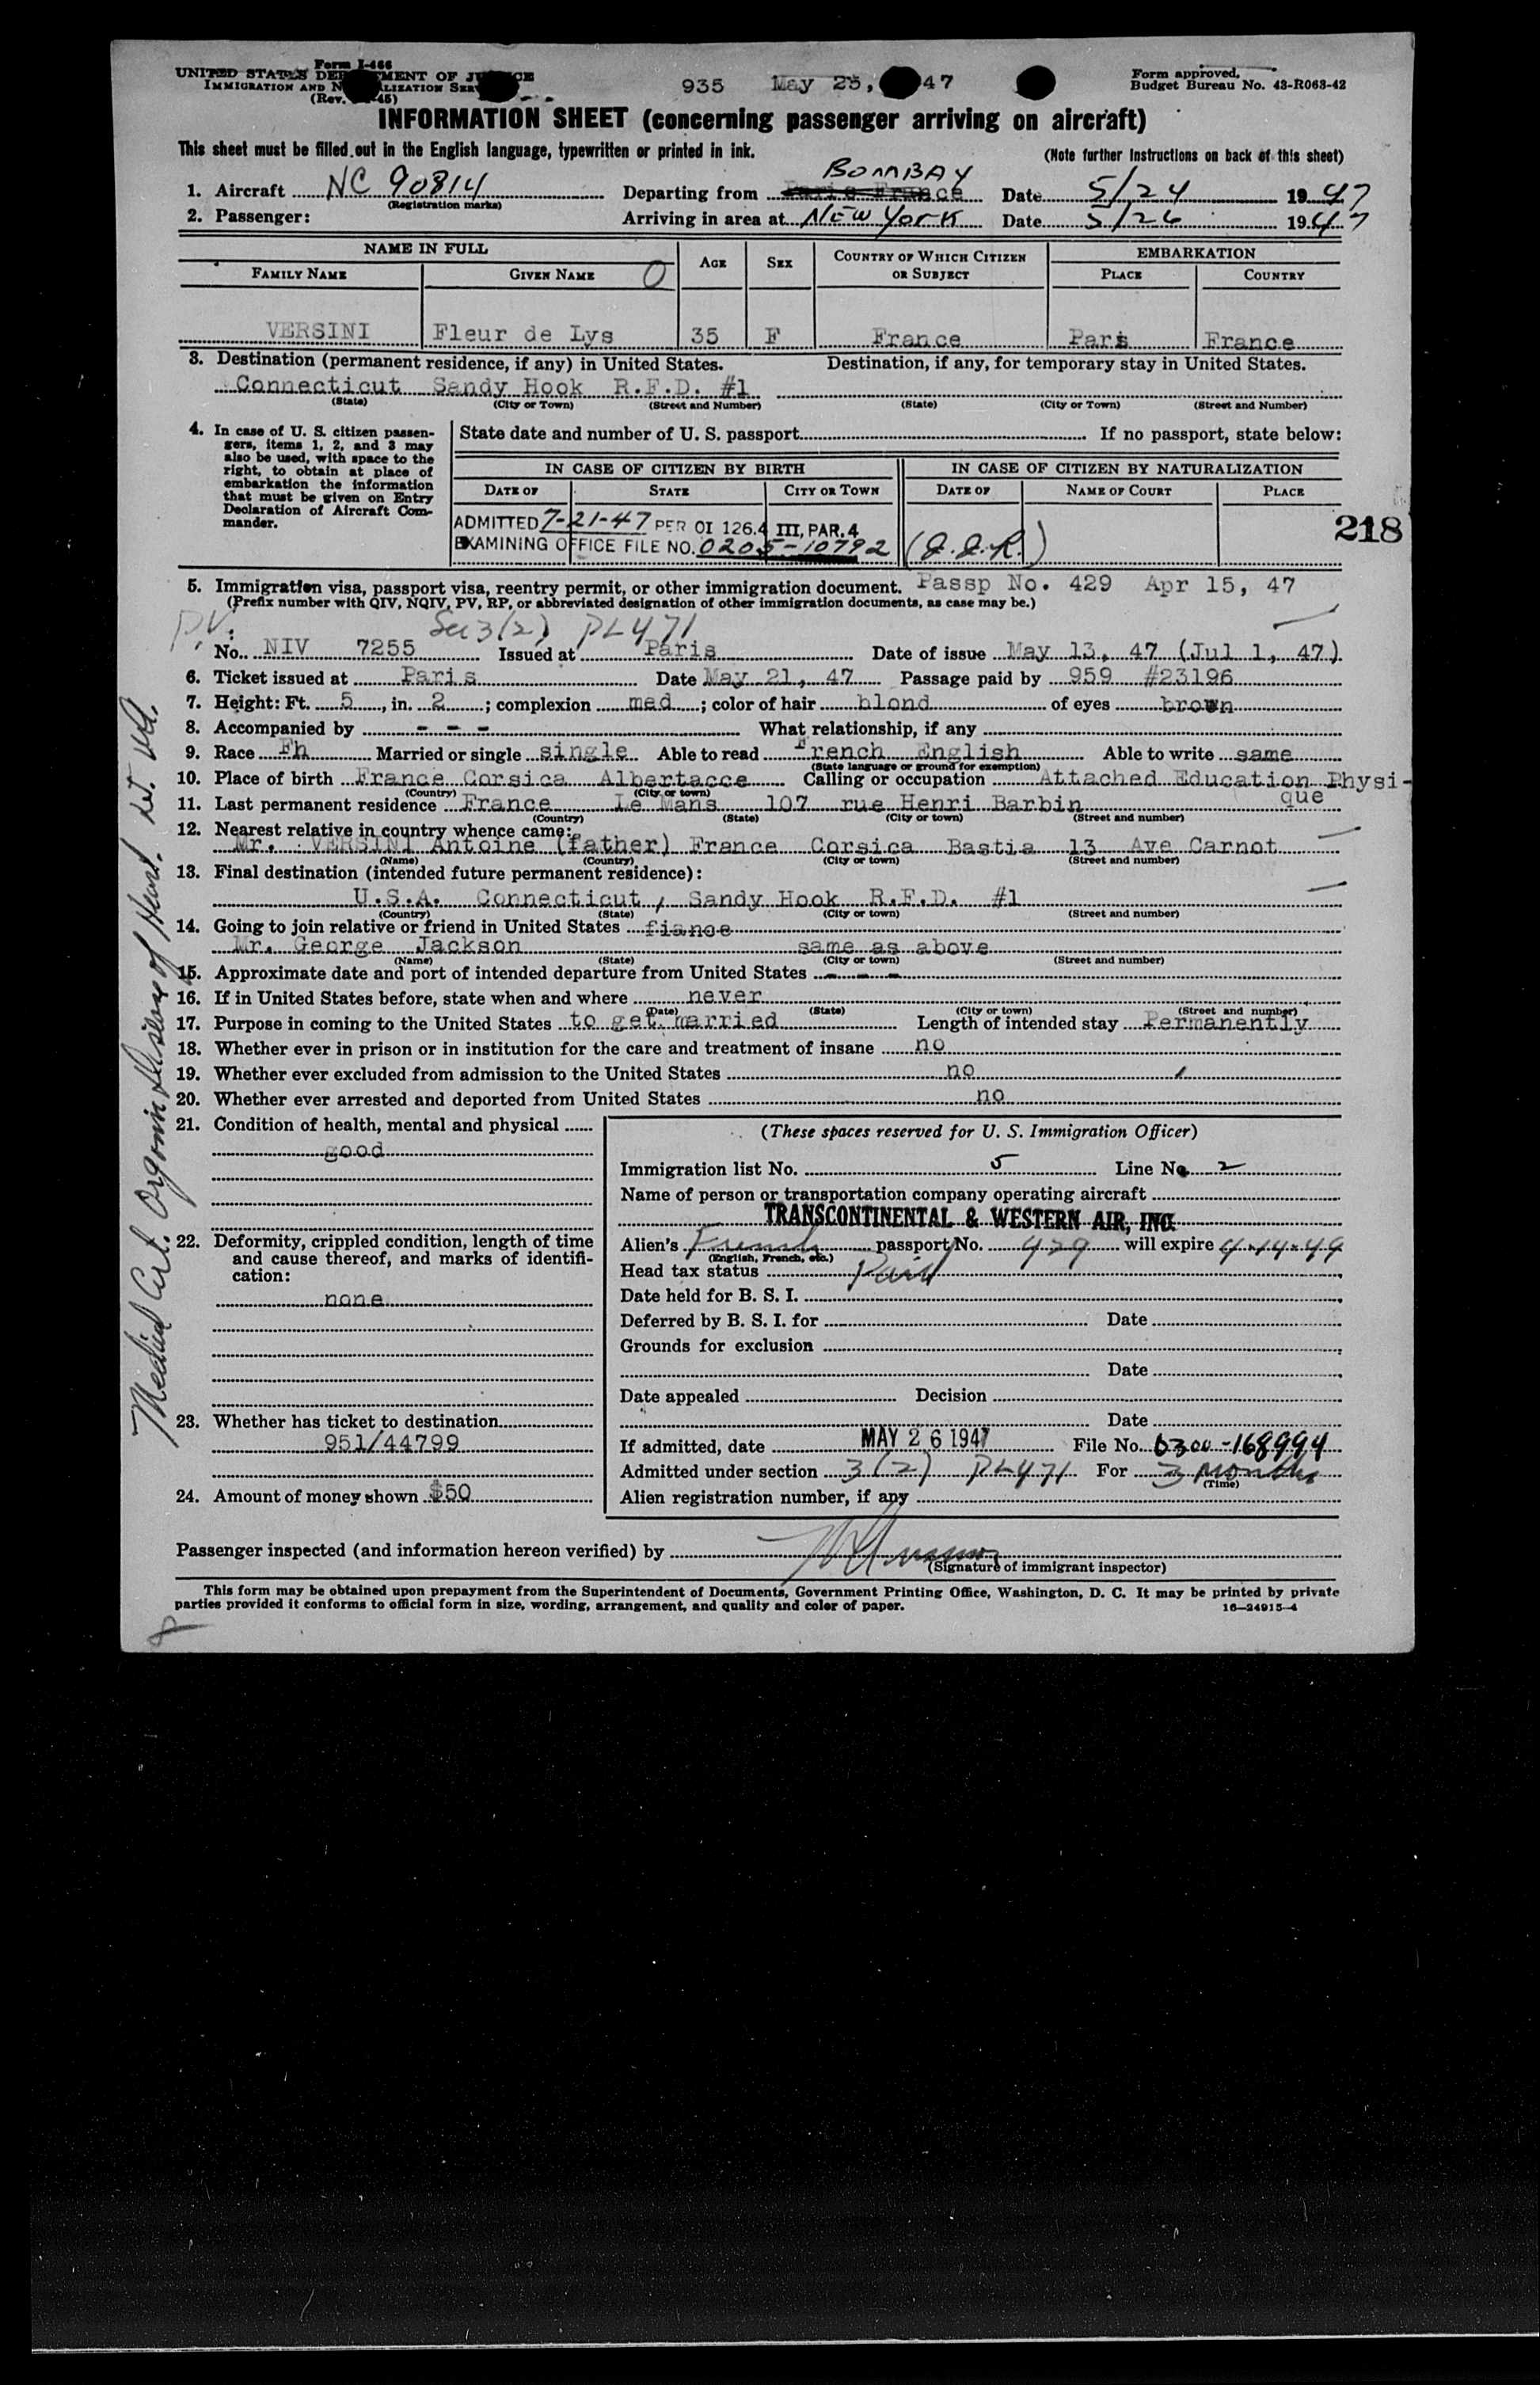 Form I-466
UNITED STATES DEPARTMENT OF JUSTICE
IMMIGRATION AND NATURALIZATION SERVICE
(Rev. -45)
935 May 25, 47
Form approved.
Budget Bureau No. 43-R063-42
INFORMATION SHEET (concerning passenger arriving on aircraft)
This sheet must be filled out in the English language, typewritten or printed in ink.
(Note further instructions on back of this sheet)
BOMBAY
1. Aircraft NC 90814 Departing from Paris France Date 5/24 1947
(Registration marks)
2. Passenger: Arriving in area at NEW YORK Date 5/26 1947
NAME IN FULL AGE SEX COUNTRY OF WHICH CITIZEN OR SUBJECT EMBARKATION
FAMILY NAME GIVEN NAME O PLACE COUNTRY
VERSINI Fleur de Lys 35 F France Paris France
3. Destination (permanent residence, if any) in United States. Destination, if any, for temporary stay in United States.
Connecticut Sandy Hook R.F.D. #1
(State) (City or Town) (Street and Number) (State) (City or Town) (Street and Number)
4. In case of U. S. citizen passengers, items 1, 2, and 3 may also be used, with space to the right, to obtain at place of embarkation the information that must be given on Entry Declaration of Aircraft Commander.
State date and number of U. S. passport If no passport, state below:
IN CASE OF CITIZEN BY BIRTH IN CASE OF CITIZEN BY NATURALIZATION
DATE OF STATE CITY OR TOWN DATE OF NAME OF COURT PLACE
ADMITTED 7-21-47 PER OI 126.4 III, PAR. 4
EXAMINING OFFICE FILE NO. 0205-10792 (J.J.R.)
218
5. Immigration visa, passport visa, reentry permit, or other immigration document. Passp No. 429 Apr 15, 47
(Prefix number with QIV, NQIV, PV, RP, or abbreviated designation of other immigration documents, as case may be.)
P.V. Sec 3(2) PL 471
No. NIV 7255 Issued at Paris Date of issue May 13, 47 (Jul 1, 47)
6. Ticket issued at Paris Date May 21, 47 Passage paid by 959 #23196
7. Height: Ft. 5, in. 2; complexion med; color of hair blond of eyes brown
8. Accompanied by - - - What relationship, if any
9. Race Fh Married or single single Able to read French English Able to write same
(State language or ground for exemption)
10. Place of birth France Corsica Albertacce Calling or occupation Attached Education Physi-
(Country) (City or town) que
11. Last permanent residence France Le Mans 107 rue Henri Barbin
(Country) (State) (City or town) (Street and number)
12. Nearest relative in country whence came:
Mr. VERSINI Antoine (father) France Corsica Bastia 13 Ave Carnot
(Name) (Country) (City or town) (Street and number)
13. Final destination (intended future permanent residence):
U.S.A. Connecticut, Sandy Hook R.F.D. #1
(Country) (State) (City or town) (Street and number)
14. Going to join relative or friend in United States fiance
Mr. George Jackson same as above
(Name) (State) (City or town) (Street and number)
15. Approximate date and port of intended departure from United States - - -
16. If in United States before, state when and where never
(Date) (State) (City or town) (Street and number)
17. Purpose in coming to the United States to get married Length of intended stay Permanently
18. Whether ever in prison or in institution for the care and treatment of insane no
19. Whether ever excluded from admission to the United States no
20. Whether ever arrested and deported from United States no
21. Condition of health, mental and physical
good
22. Deformity, crippled condition, length of time and cause thereof, and marks of identification:
none
23. Whether has ticket to destination
951/44799
24. Amount of money shown $50
(These spaces reserved for U. S. Immigration Officer)
Immigration list No. 5 Line No. 2
Name of person or transportation company operating aircraft
TRANSCONTINENTAL & WESTERN AIR, INC.
Alien's French passport No. 429 will expire 4-14-49
(English, French, etc.)
Head tax status Paid
Date held for B. S. I.
Deferred by B. S. I. for Date
Grounds for exclusion
Date
Date appealed Decision
Date
If admitted, date MAY 26 1947 File No. 0300-168994
Admitted under section 3(2) PL 471 For 3 months
(Time)
Alien registration number, if any
Passenger inspected (and information hereon verified) by
(Signature of immigrant inspector)
This form may be obtained upon prepayment from the Superintendent of Documents, Government Printing Office, Washington, D. C. It may be printed by private
parties provided it conforms to official form in size, wording, arrangement, and quality and color of paper. 16—24915-4
Medical Cert. Organic disease of Heart.